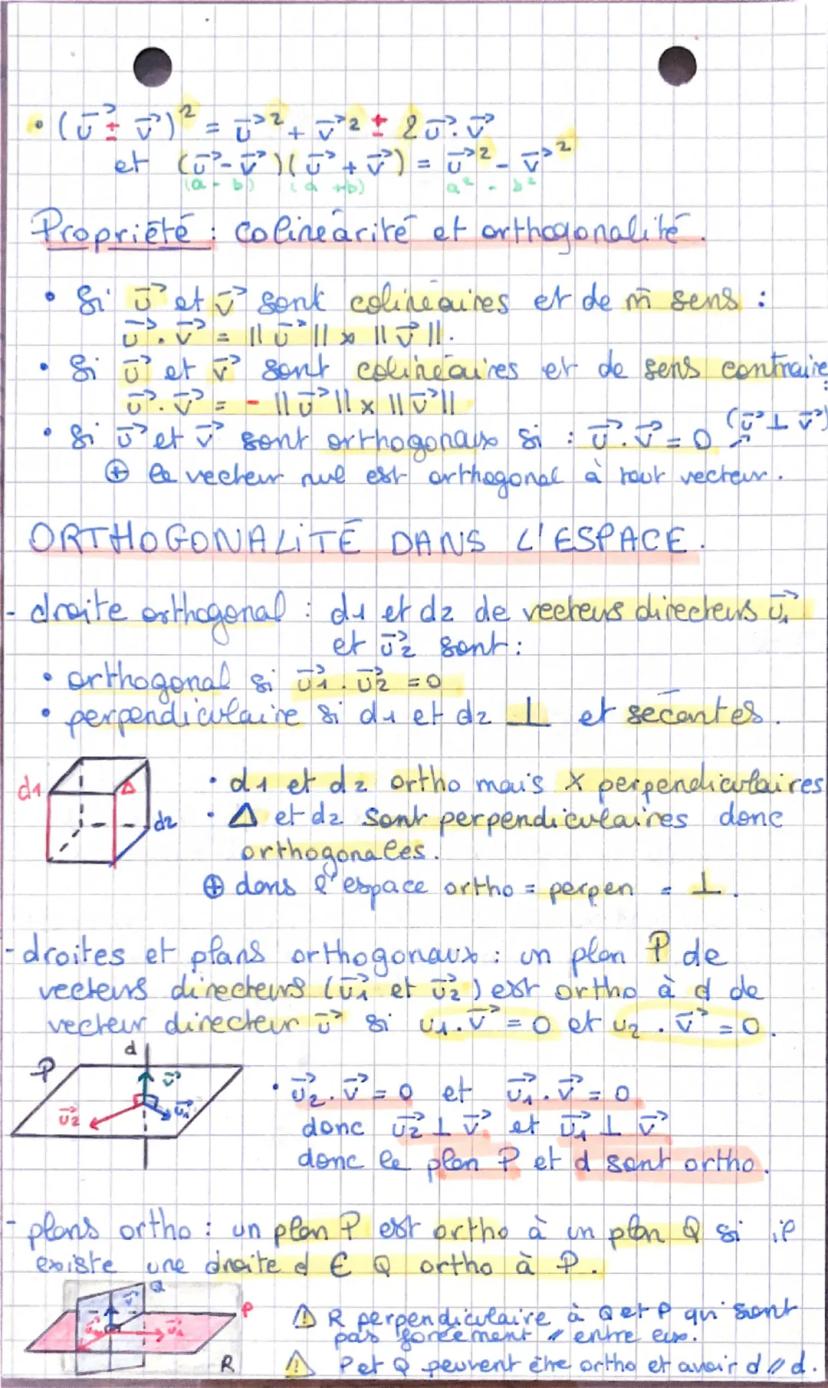 • (u⃗ ± v⃗)² = u⃗² + v⃗² ± 2u⃗.v⃗
et (u⃗ - v⃗)(u⃗ + v⃗) = u⃗² - v⃗²
(a - b) (a + b) a² - b²
Propriété : colinéarité et orthogonalité.
• Si u⃗ et v⃗ sont colinéaires et de m̄ sens :
u⃗ . v⃗ = || u⃗ || x || v⃗ ||.
• Si u⃗ et v⃗ sont colinéaires et de sens contraire :
u⃗ . v⃗ = - || u⃗ || x || v⃗ ||
• Si u⃗ et v⃗ sont orthogonaux si : u⃗ . v⃗ = 0 (u⃗ ⊥ v⃗)
⊕ le vecteur nul est orthogonal à tout vecteur.
ORTHOGONALITÉ DANS L'ESPACE.
- droite orthogonal : d1 et d2 de vecteurs directeurs u⃗1
et u⃗2 sont :
• orthogonal si u⃗1 . u⃗2 = 0
• perpendiculaire si d1 et d2 ⊥ et sécantes.
d1 Δ d2
• d1 et d2 ortho mais X perpendiculaires
• Δ et d2 sont perpendiculaires donc
orthogonales.
⊕ dans l'espace ortho = perpen = ⊥.
- droites et plans orthogonaux : un plan P de
vecteurs directeurs (u⃗1 et u⃗2) est ortho à d de
vecteur directeur v⃗ si u1 . v⃗ = 0 et u2 . v⃗ = 0.
P d v⃗ u⃗2 u⃗1
• u⃗2 . v⃗ = 0 et u⃗1 . v⃗ = 0
donc u⃗2 ⊥ v⃗ et u⃗1 ⊥ v⃗
donc le plan P et d sont ortho.
- plans ortho : un plan P est ortho à un plan Q si il
existe une droite d ∈ Q ortho à P.
Q v⃗ P R
⚠ R perpendiculaire à Q et P qui sont
pas forcément // entre eux.
⚠ P et Q peuvent être ortho et avoir d // d.